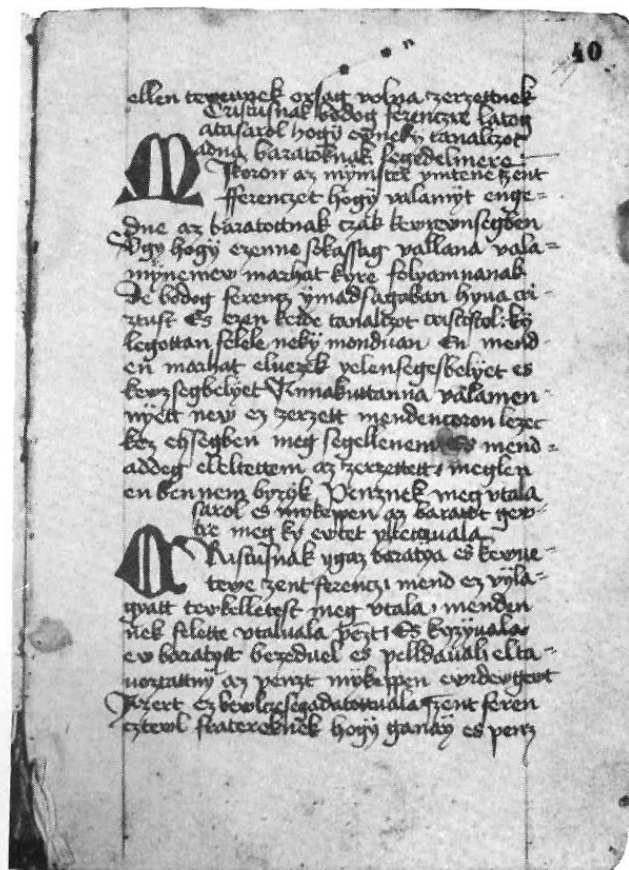 40
ellen tewenek orsag volna zerzettnek
Cristusnak bodog ferenczre latog
atasarol hogy ezneky tanalczot
adna baratoknak segedelmere
Mikoron az mynister yntene zent
fferenczet hogy valamyt enge=
dne az baratoctnak czak kewzewnsegben
Vgy hogy ezenne sokassag vallana vala=
mynemew marhat kyre folyamnanak
De bodog ferencz ymadsagaban hyua cri=
ztust Es ezen kerde tanalczot cristostol: ky
legottan felele neky monduan En mend=
en marhat eluezek yelensegesbelyet es
kewzsegbelyet Annakvttanna valamen=
nyett new ez zerzett mendencoron lezec
kez ehsegben meg segellenem Es mend=
addeg eleltettem az zerzettett, meglen
en bennem byzyk Penznek meg vtala
sarol es mykeppen az baratot gew=
tre meg ky ewtet yllettuala
CRistusnak ygaz baratya es kewue=
tewe zent ferencz, mend ez vyla=
gyatt tewkelletest meg vtala, menden
nek felette vtaluala pezt, Es hyuyuala
ew baratytt bezeduel es pelldaual elta=
uoztattny az penzt mykeppen ewrdewgewt
Azert ez bewlczeseg adatottuala zent feren
cztewl fratereknek hogy ganay es penz